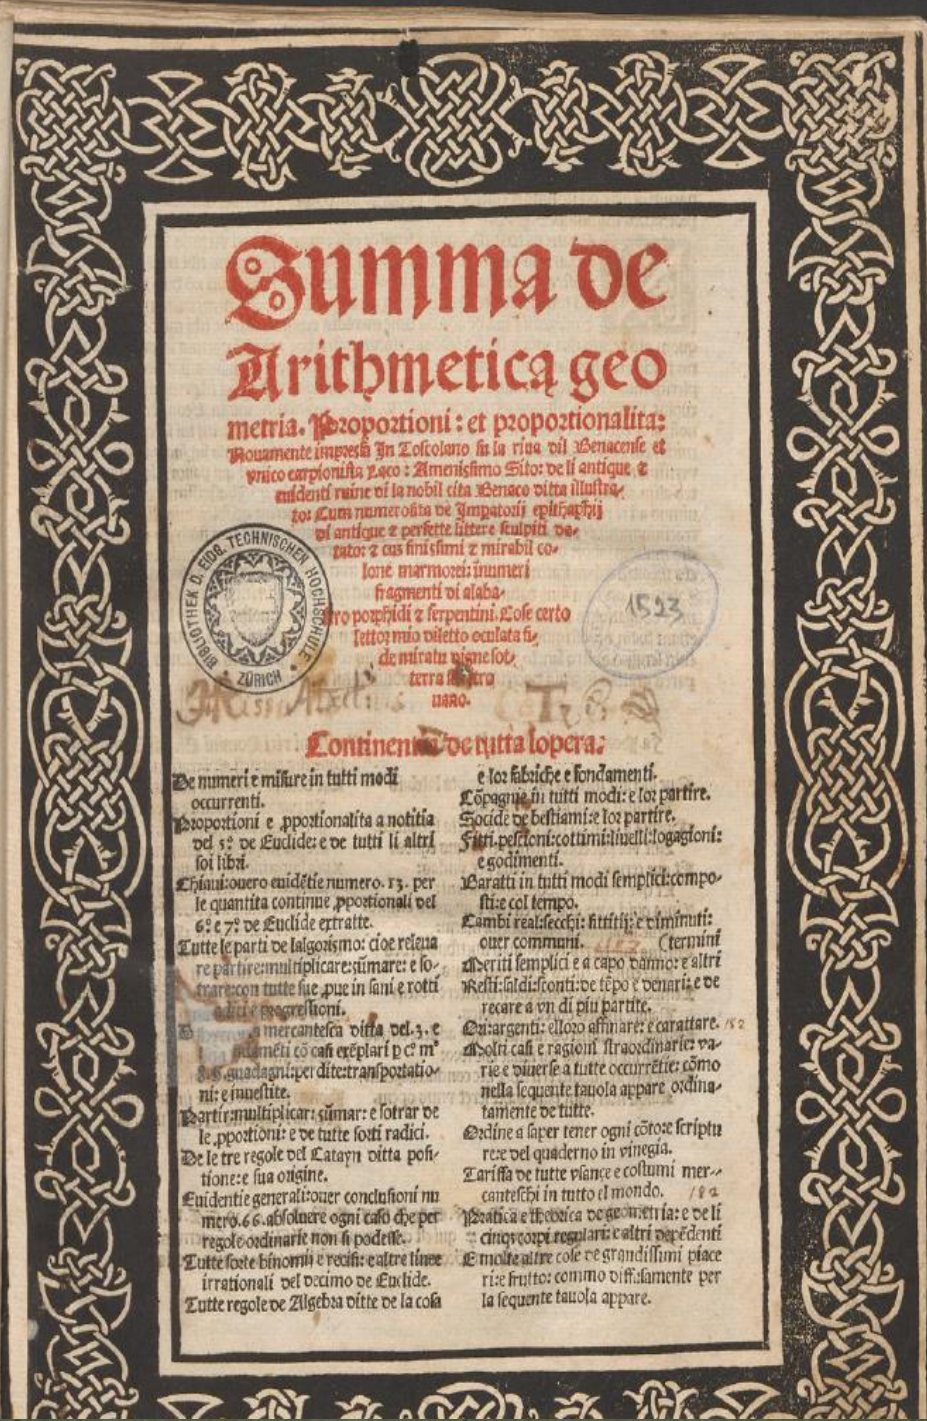 Summa de
Arithmetica geo
metria. Proportioni: et proportionalita:
Nouamente impressa In Toscolano su la riua dil Benacense et
vnico carpionista Laco: Amenissimo Sito: de li antique &
euidenti ruine di la nobil cita Benaco ditta illustra-
to: Cum numerosita de Impatorij epithaphij
di antique & perfette littere sculpiti do-
tato: & cũs finissimi & mirabil co-
lone marmorei: inumeri
fragmenti di alaba-
stro porphidi & serpentini. Cose certo
lettor mio diletto oculata fi-
de miratu digne sot-
terra se
uano.
BIBLIOTHEK D. EIDG. TECHNISCHEN HOCHSCHULE
ZÜRICH
1523
Continentia de tutta lopera:
De numeri e misure in tutti modi
occurrenti.
Proportioni e ꝓportionalita a notitia
del 5º de Euclide: e de tutti li altri
soi libri.
Chiaui: ouero euidẽtie numero. 13. per
le quantita continue ꝓportionali del
6º e 7º de Euclide extratte.
Tutte le parti de lalgorismo: cioe releua
re partire: multiplicare: sũmare: e so-
trare: con tutte sue ꝓue in sani e rotti
e progressioni.
mercantesca ditta del. 3. e
cõ casi exẽplari p cº mº
guadagni: perdite: transportatio-
ni: e inuestite.
Partir: multiplicar: sũmar: e sotrar de
le ꝓportioni: e de tutte sorti radici.
De le tre regole del Catayn ditta posi-
tione: e sua origine.
Euidentie generali: ouer conclusioni nu
mero. 66. absoluere ogni caso che per
regole ordinarie non si podesse.
Tutte sorte binomii e recisi: e altre linee
irrationali del decimo de Euclide.
Tutte regole de Algebra ditte de la cosa
e lor fabriche e fondamenti.
Cõpagnie in tutti modi: e lor partire.
Socide de bestiami: e lor partire.
Fitti: pescioni: cottimi: liuelli: logagioni:
e godimenti.
Baratti in tutti modi semplici: compo-
sti: e col tempo.
Cambi real: secchi: fittitij: e diminuti:
ouer communi. (termini
Meriti semplici e a capo danno: e altri
Resti: saldi: sconti: de tẽpo e denari: e de
recare a vn di piu partite.
Ori: argenti: e lloro affinare: e carattare.
Molti casi e ragioni straordinarie: va-
rie e diuerse a tutte occurrẽtie: cõmo
nella sequente tauola appare ordina-
tamente de tutte.
Ordine a saper tener ogni cõto: e scriptu
re: e del quaderno in vinegia.
Tariffa de tutte vsance e costumi mer-
canteschi in tutto el mondo. 182
Pratica e theorica de geometria: e de li
cinqȝ corpi regulari: e altri depẽdenti
E molte altre cose de grandissimi piace
ri: e frutto: commo diffusamente per
la sequente tauola appare.